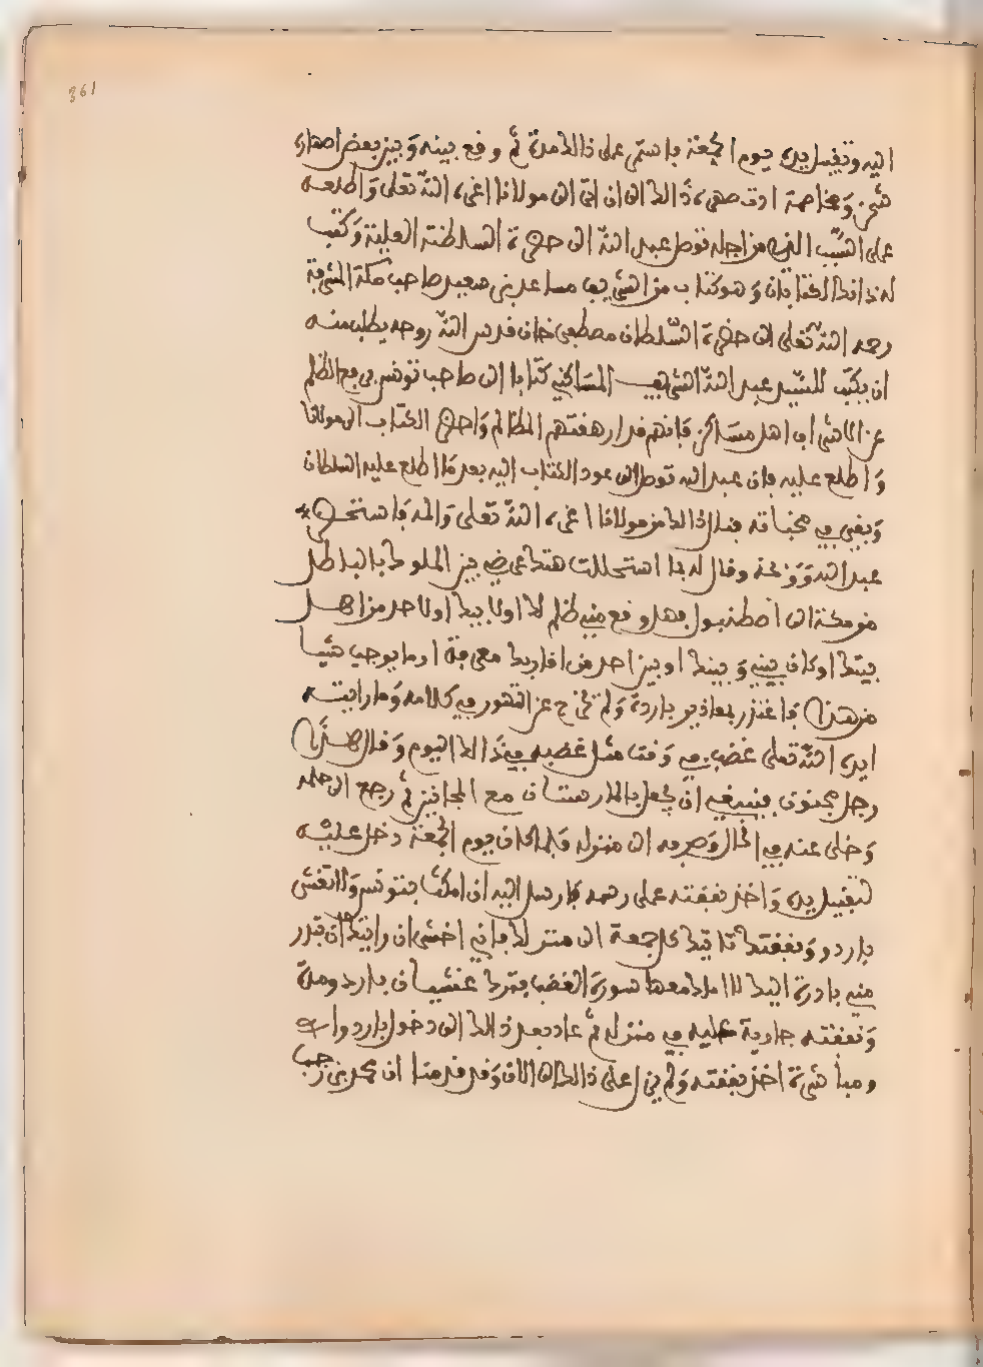 361
اليه وتقبيل يده يوم الجمعة فاستمر على ذالك مدة ثم وقع بينه وبين بعض اصهاره
شحن ومخاصمة ذالك الى ان اتى الى مولانا اعزه الله تعلى واطلعه
على السبب الذي من اجله توصل عبد الله الى حضرة السلطنة العلية وكتب
له ذانك الكتابان وهو كتاب من الشريف مساعد بن سعيد صاحب مكة المشرفة
رحمه الله تعلى الى حضرة السلطان مصطفى خان قدس الله روحه يطلب منه
ان يكتب للسيد عبد الله الشريف المساكني كتابا الى صاحب تونس برفع الظلم
عن الاشراف اهل مساكن فانهم قد ارهقتهم المظالم واحضر الكتاب الى مولانا
واطلع عليه فان عبد الله توصل الى عود الكتاب اليه بعد ما اطلع عليه السلطان
وبقي في مخباته فنال ذالك من مولانا اعزه الله تعلى والمه فاستحضر
عبد الله ووبخه وقال له بما استحللت هتك عرضي بين الملوك بالباطل
من مكة الى اصطنبول فهل وقع مني ظلم لك او لابيك او لاحد من اهل
بيتك او كان بيني وبينك او بين احد من اقاربك معرفة او ما يوجب شيئا
من هذا فاعتذر بمعاذير باردة ولم تخرج عن التهور في كلامه وما رايته
ايده الله تعلى غضب في وقت مثل غضبه في ذالك اليوم وقال هذا
رجل مجنون فينبغي ان يجعل بالمارستان مع المجانين ثم رجع الى حلمه
وخلى عنه في الحال وصرفه الى منزله فلما كان يوم الجمعة دخل عليه
لتقبيل يده واخذ نفقته على رسمه فارسل اليه ان امكث بتونس ولا تغش
باردو ونفقتك تاتيك كل جمعة الى منزلك فاني اخشى ان رايتك ان تبدر
مني بادرة اليك لا املك معها سورة الغضب فترك غشيان باردو مدة
ونفقته جارية عليه في منزله ثم عاد بعد ذالك الى دخول باردوا
ومباشرة اخذ نفقته ولم يزل على ذالك الى الان وقد قدمنا ان محمد بن رجب